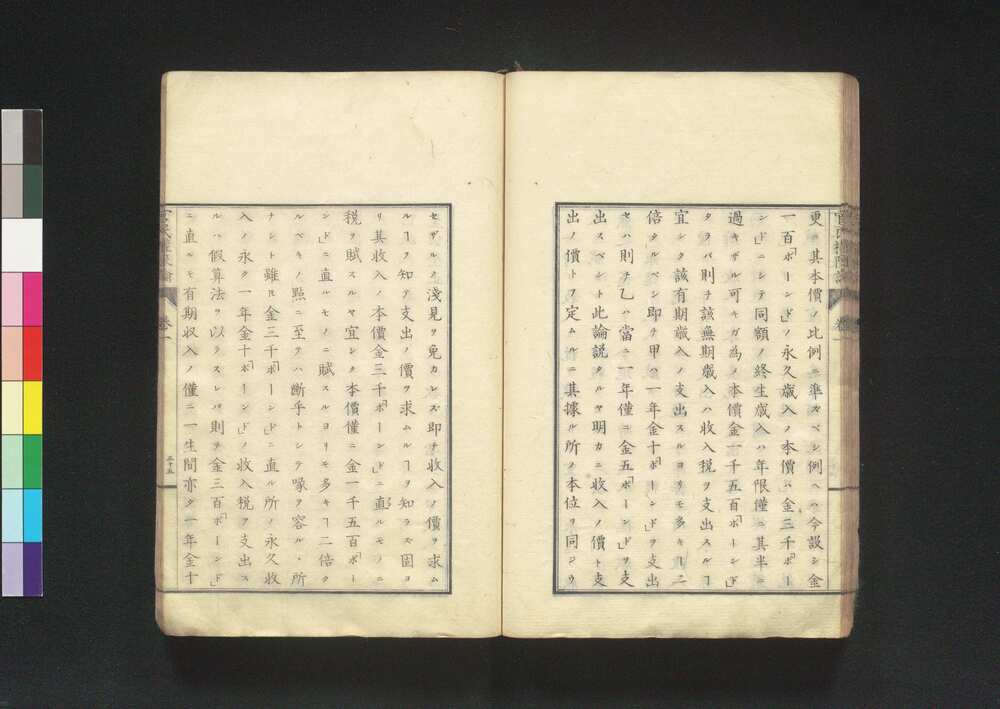 更ニ其本價ノ比例ニ準ズベシ例ヘハ今設シ金
一百「ポーンド」ノ永久歳入ノ本價ハ金三千「ポー
ンド」ニシテ同額ノ終生歳入ハ年限僅ニ其半ニ
過キザル可キガ為メ本價金一千五百「ポーンド」
タラバ則チ該無期歳入ハ收入税ヲ支出スルヿ
宜シク該有期歳入ノ支出スルヨリモ多キ一二
倍タルベシ即チ甲ハ一年金十「ポーンド」ヲ支出
セハ則チ乙ハ當ニ一年僅ニ金五「ポーンド」ヲ支
出スベシト此論説タルヤ明カニ收入ノ價ト支
出ノ價トヲ定ムルニ其據ル所ノ本位ヲ同ジウ
セザルノ淺見ヲ免カレズ即チ收入ノ價ヲ求ム
ルヿヲ知テ支出ノ價ヲ求ムルヿヲ知ラズ固ヨ
リ其收入ノ本價金三千「ポーンド」ニ直ルモノニ
税ヲ賦スルヤ宜シク本價僅ニ金一千五百「ポー
ンド」ニ直ルモノニ賦スルヨリモ多キヿ二倍タ
ルベキノ點ニ至テハ斷乎トシテ喙ヲ容ル、所
ナシト雖𪜈金三千「ポーンド」ニ直ル所ノ永久收
入ノ永ク一年金十「ポーンド」ノ收入税ヲ支出ス
ルハ假算法ヲ以ラスレバ則ヲ金三百「ポーンド」
ニ直ルモ有期收入ノ僅ニ一生間亦タ一年金十
卷一
三十五